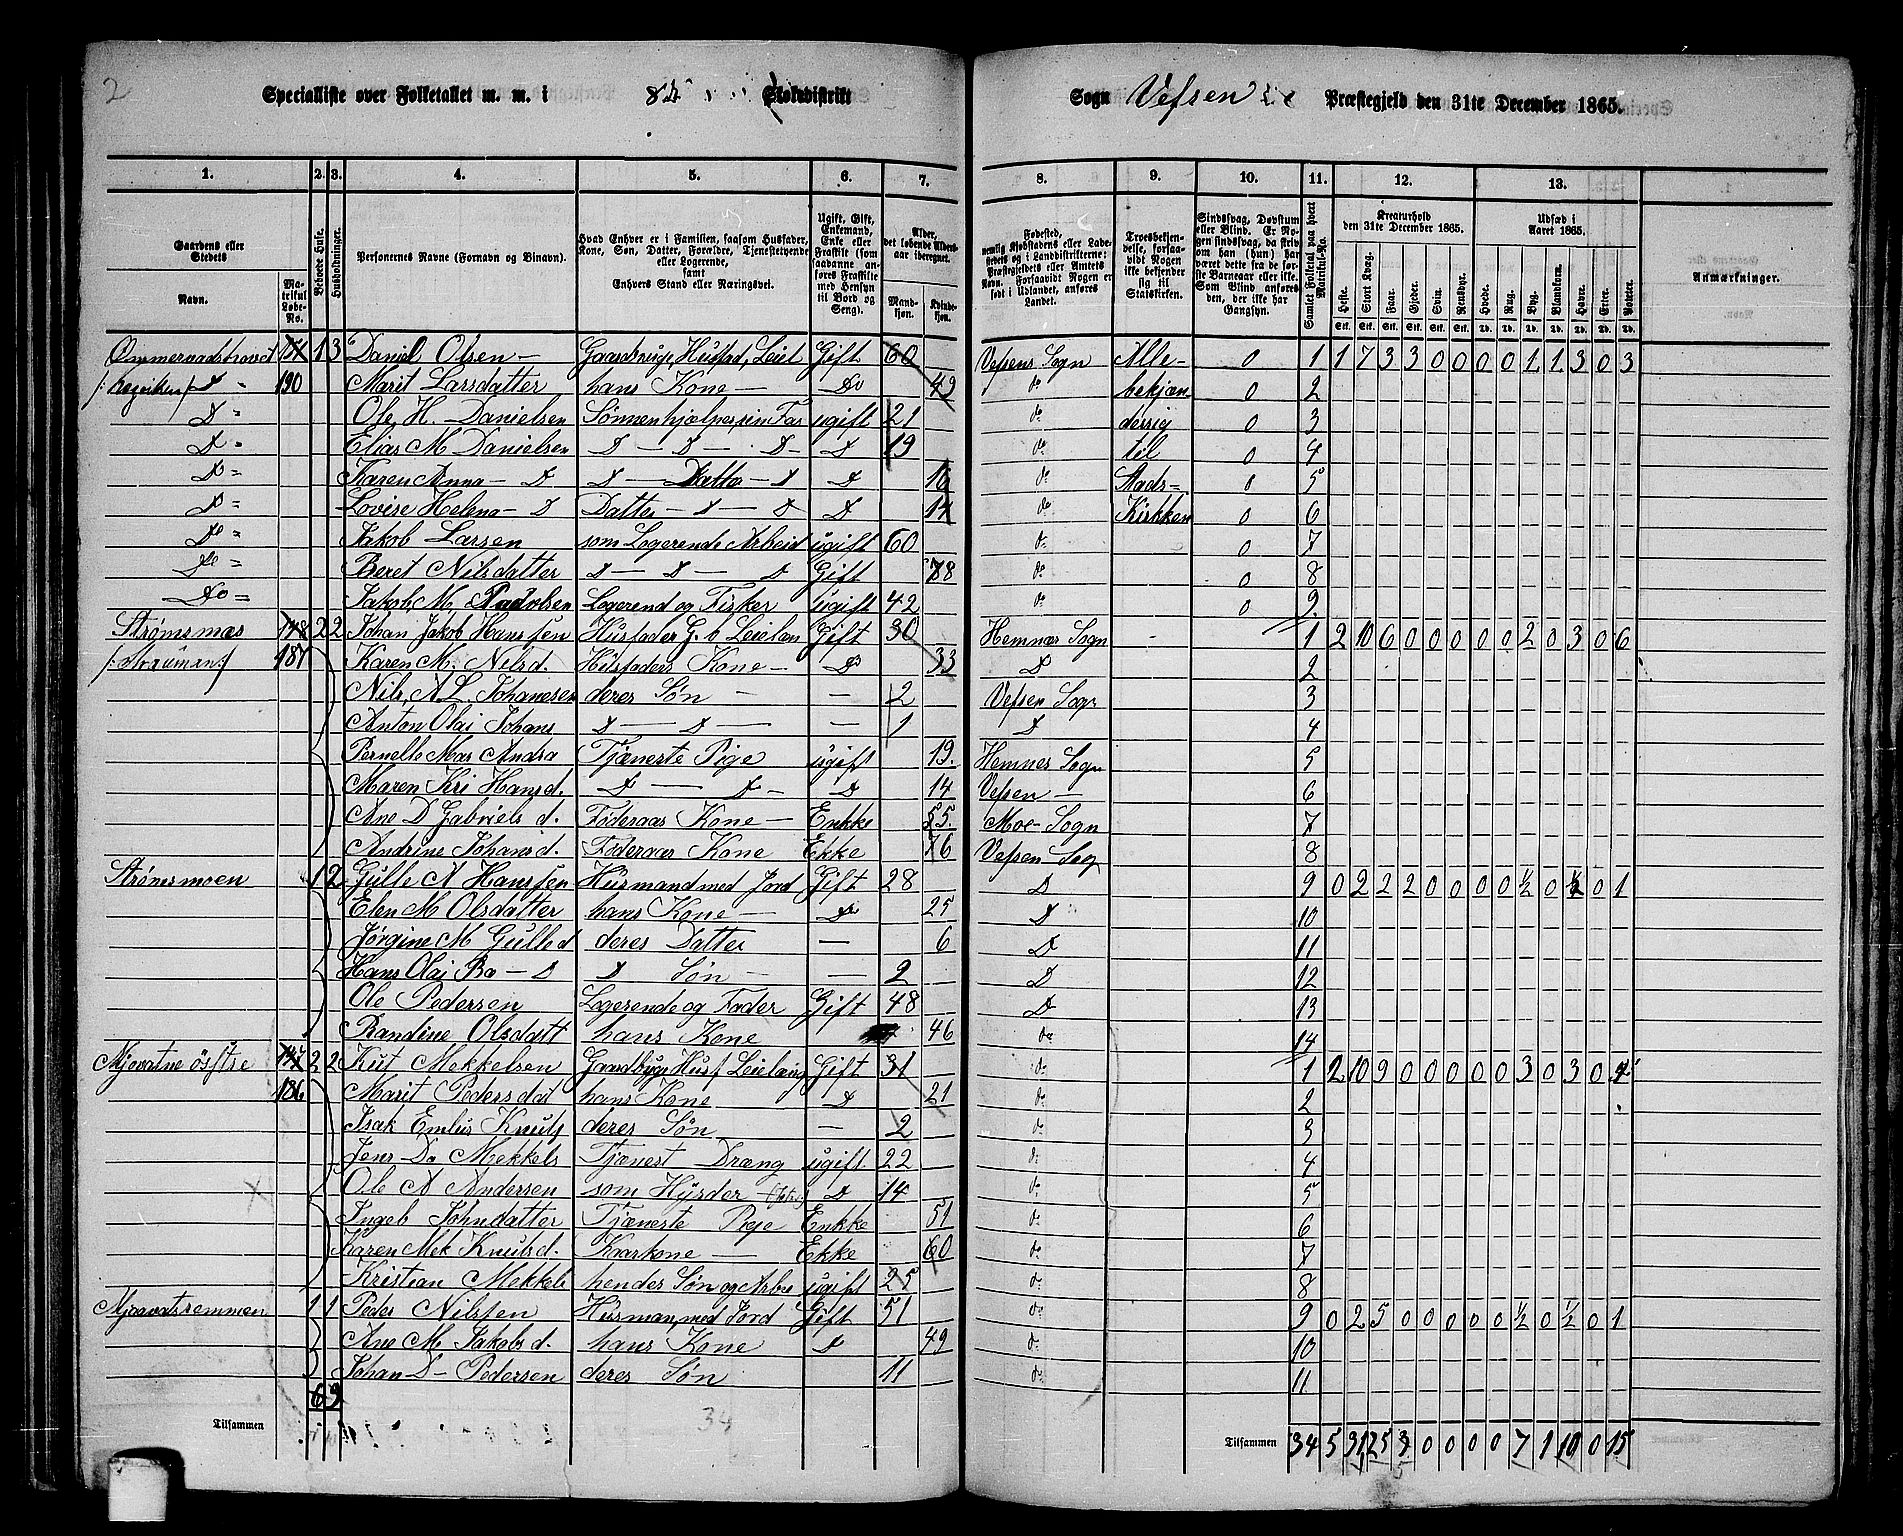 2
Specialliste over Folketallet m. m. i 8de Skoledistrikt
Sogn Vefsen Præstegjeld den 31te December 1865.
1. 2. 3. 4. 5. 6. 7. 8. 9. 10. 11. 12. 13.
Gaardens eller Stedets
Navn.
Matrikul Løbe-No.
Bebyggede Huse.
Husholdninger.
Personernes Navne (Fornavn og Binavn).
Hvad Enhver er i Familien, saasom Husfader, Kone, Søn, Datter, Forældre, Tjenestetyende eller Logerende, samt Enhvers Stand eller Næringsvei.
Ugift, Gift, Enkemand, Enke eller Fraskilt (som saadanne anføres Fraskilte med Hensyn til Bord og Seng).
Alder, det løbende Aldersaar iberegnet.
Mandkjøn.
Kvindekjøn.
Fødested,
Troesbekjendelse, forsaavidt Nogen ikke bekjender sig til Statskirken.
Sindssvag, Døvstum eller Blind.
Samlet Folketal paa hvert Matrikul-No.
Kreaturhold den 31te December 1865.
Heste. Stort Kvæg. Faar. Gjeder. Svin. Rensdyr.
Udsæd i Aaret 1865.
Hvede. Rug. Byg. Blandkorn. Havre. Erter. Poteter.
Anmærkninger.
151 1 3 Daniel Olsen – Gift 60 Vefsens Sogn Alle- 0 1 1 7 3 3 0 0 0 0 1 1 3 0 3
D 190 Marit Larsdatter hans Kone – Do 49 do bekjæn 0 2
D Ole H. Danielsen Sønnen hjælper sin Far ugift 21 do dersig 0 3
D Elias M Danielsen D – D – D – D D 19 do til 0 4
D Karen Anna – D D – Datter – D D 16 do Stads= 0 5
D Lovise Helena – D Datter – D – D D 14 do Kirkken 0 6
Do Jakob Larsen som Logerende Arbeid ugift 60 do 0 7
Do Beret Nilsdatter D – D – D Gift 78 do 0 8
Do Jakob M. Logerend og Fisker ugift 42 do 0 9
Strømsnæs 148 2 2 Johan Jakob Hanssen Husfader G. b Leielæn Gift 30 Hemnæs Sogn 1 2 10 6 0 0 0 0 0 2 0 3 0 6
187 Karen M. Nilsd. Husfaders Kone – D 33 D 2
Nils A L. Johanesen deres Søn – 2 Vefsen Sogn 3
Anton Olai Johans D – D – 1 D 4
Pernelle Mar Andra Tjæneste Pige ugift 19. Hemnes Sogn 5
Maren Kri Hansd. D – D – D 14 Vefsen – 6
Ane D Gabriels d. Føderaas Kone – Enkke 55. Moe – Sogn 7
Andrine Johansd. Føderaas Kone Ekke 76 Vefsen Sog 8
Strønesmoen 1 2 Gulle A Hanssen Husmand med Jord Gift 28 D 9 0 2 2 2 0 0 0 0 ½ 0 ½ 0 1
Elen M Olsdatter hans Kone – Do 25 D 10
Jørgine M Gulled deres Datter – 6 D 11
Hans Olai Ba – D D Søn – 2 D 12
Ole Pedersen Logerende og Fader Gift 48 D 13
Randine Olsdatt hans Kone 46 do 14
Mjovatne østre 147 2 2 Knut Mekkelsen Gaardbruge Husf Leilæn Gift 31 do 1 2 10 9 0 0 0 0 0 3 0 3 0 4
186 Marit Pedersdat hans Kone D 21 do 2
Isak Emlius Knuts deres Søn – 2 do 3
Jens Da Mekkels Tjænest Dræng ugift 22 do 4
Ole A Andersen som Hyrder D 14 do 5
Ingeb Johndatter Tjæneste Pige Enkke 51 do 6
Karen Mek Knutsd. Kaarkone – Ekke 60 do 7
Kristian Mekkels hendes Søn og Arbe ugift 25 do 8
Mjovatsremmen 1 1 Peder Nilssen Husman med Jord Gift 51 do 9 0 2 5 0 0 0 0 0 ½ 0 ½ 0 1
Ane M. Jakobs d. hans Kone D 49 do 10
Johan D – Pedersen deres Søn 11 do 11
6 9
Tilsammen 34
Tilsammen 34 5 31 25 3 0 0 0 0 7 1 10 0 15
5